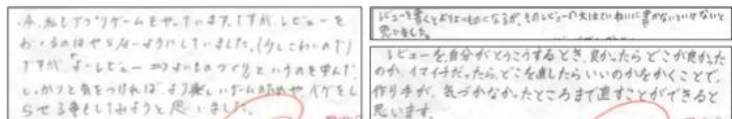 今、私もアプリゲームをやっています。ですが、レビューを
のはやらないようにしていました。(少しこわいので)
ですが よいレビュー ⇒ よいものづくりというのを学んだ
しっかりと気をつければ より楽しいゲームのためや、
らせる事もしてみようと思いました。
レビューを書くとよりよいものになるが、そのレビューの
思いました。
レビューを自分がとうこうするとき、良かったらどこが良かった
のか、イマイチだったら、どこを直したらいいのかをかくことで、
作り手が、気づかなかったところまで直すことができると
思います。